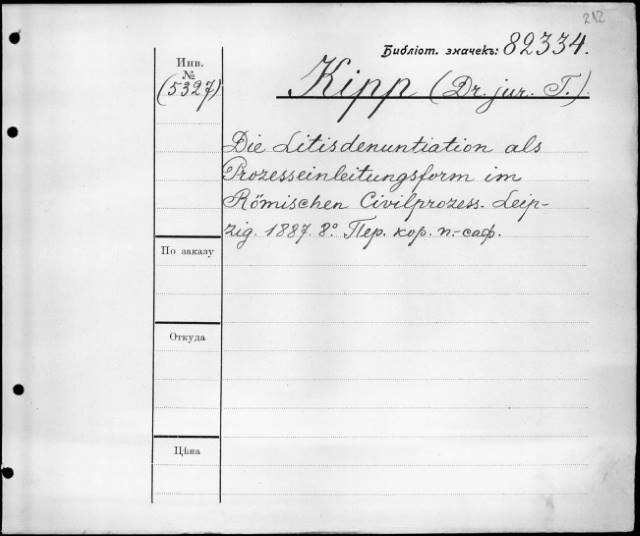 212
Библіот. значекъ: 82334.
Инв.
№
(5327)
Kipp (Dr. jur. T.)
Die Litisdenuntiation als
Prozesseinleitungsform im
Römischen Civilprozess. Leip-
zig. 1887. 8° Пер. кор. п.-саф.
По заказу
Откуда
Цѣна